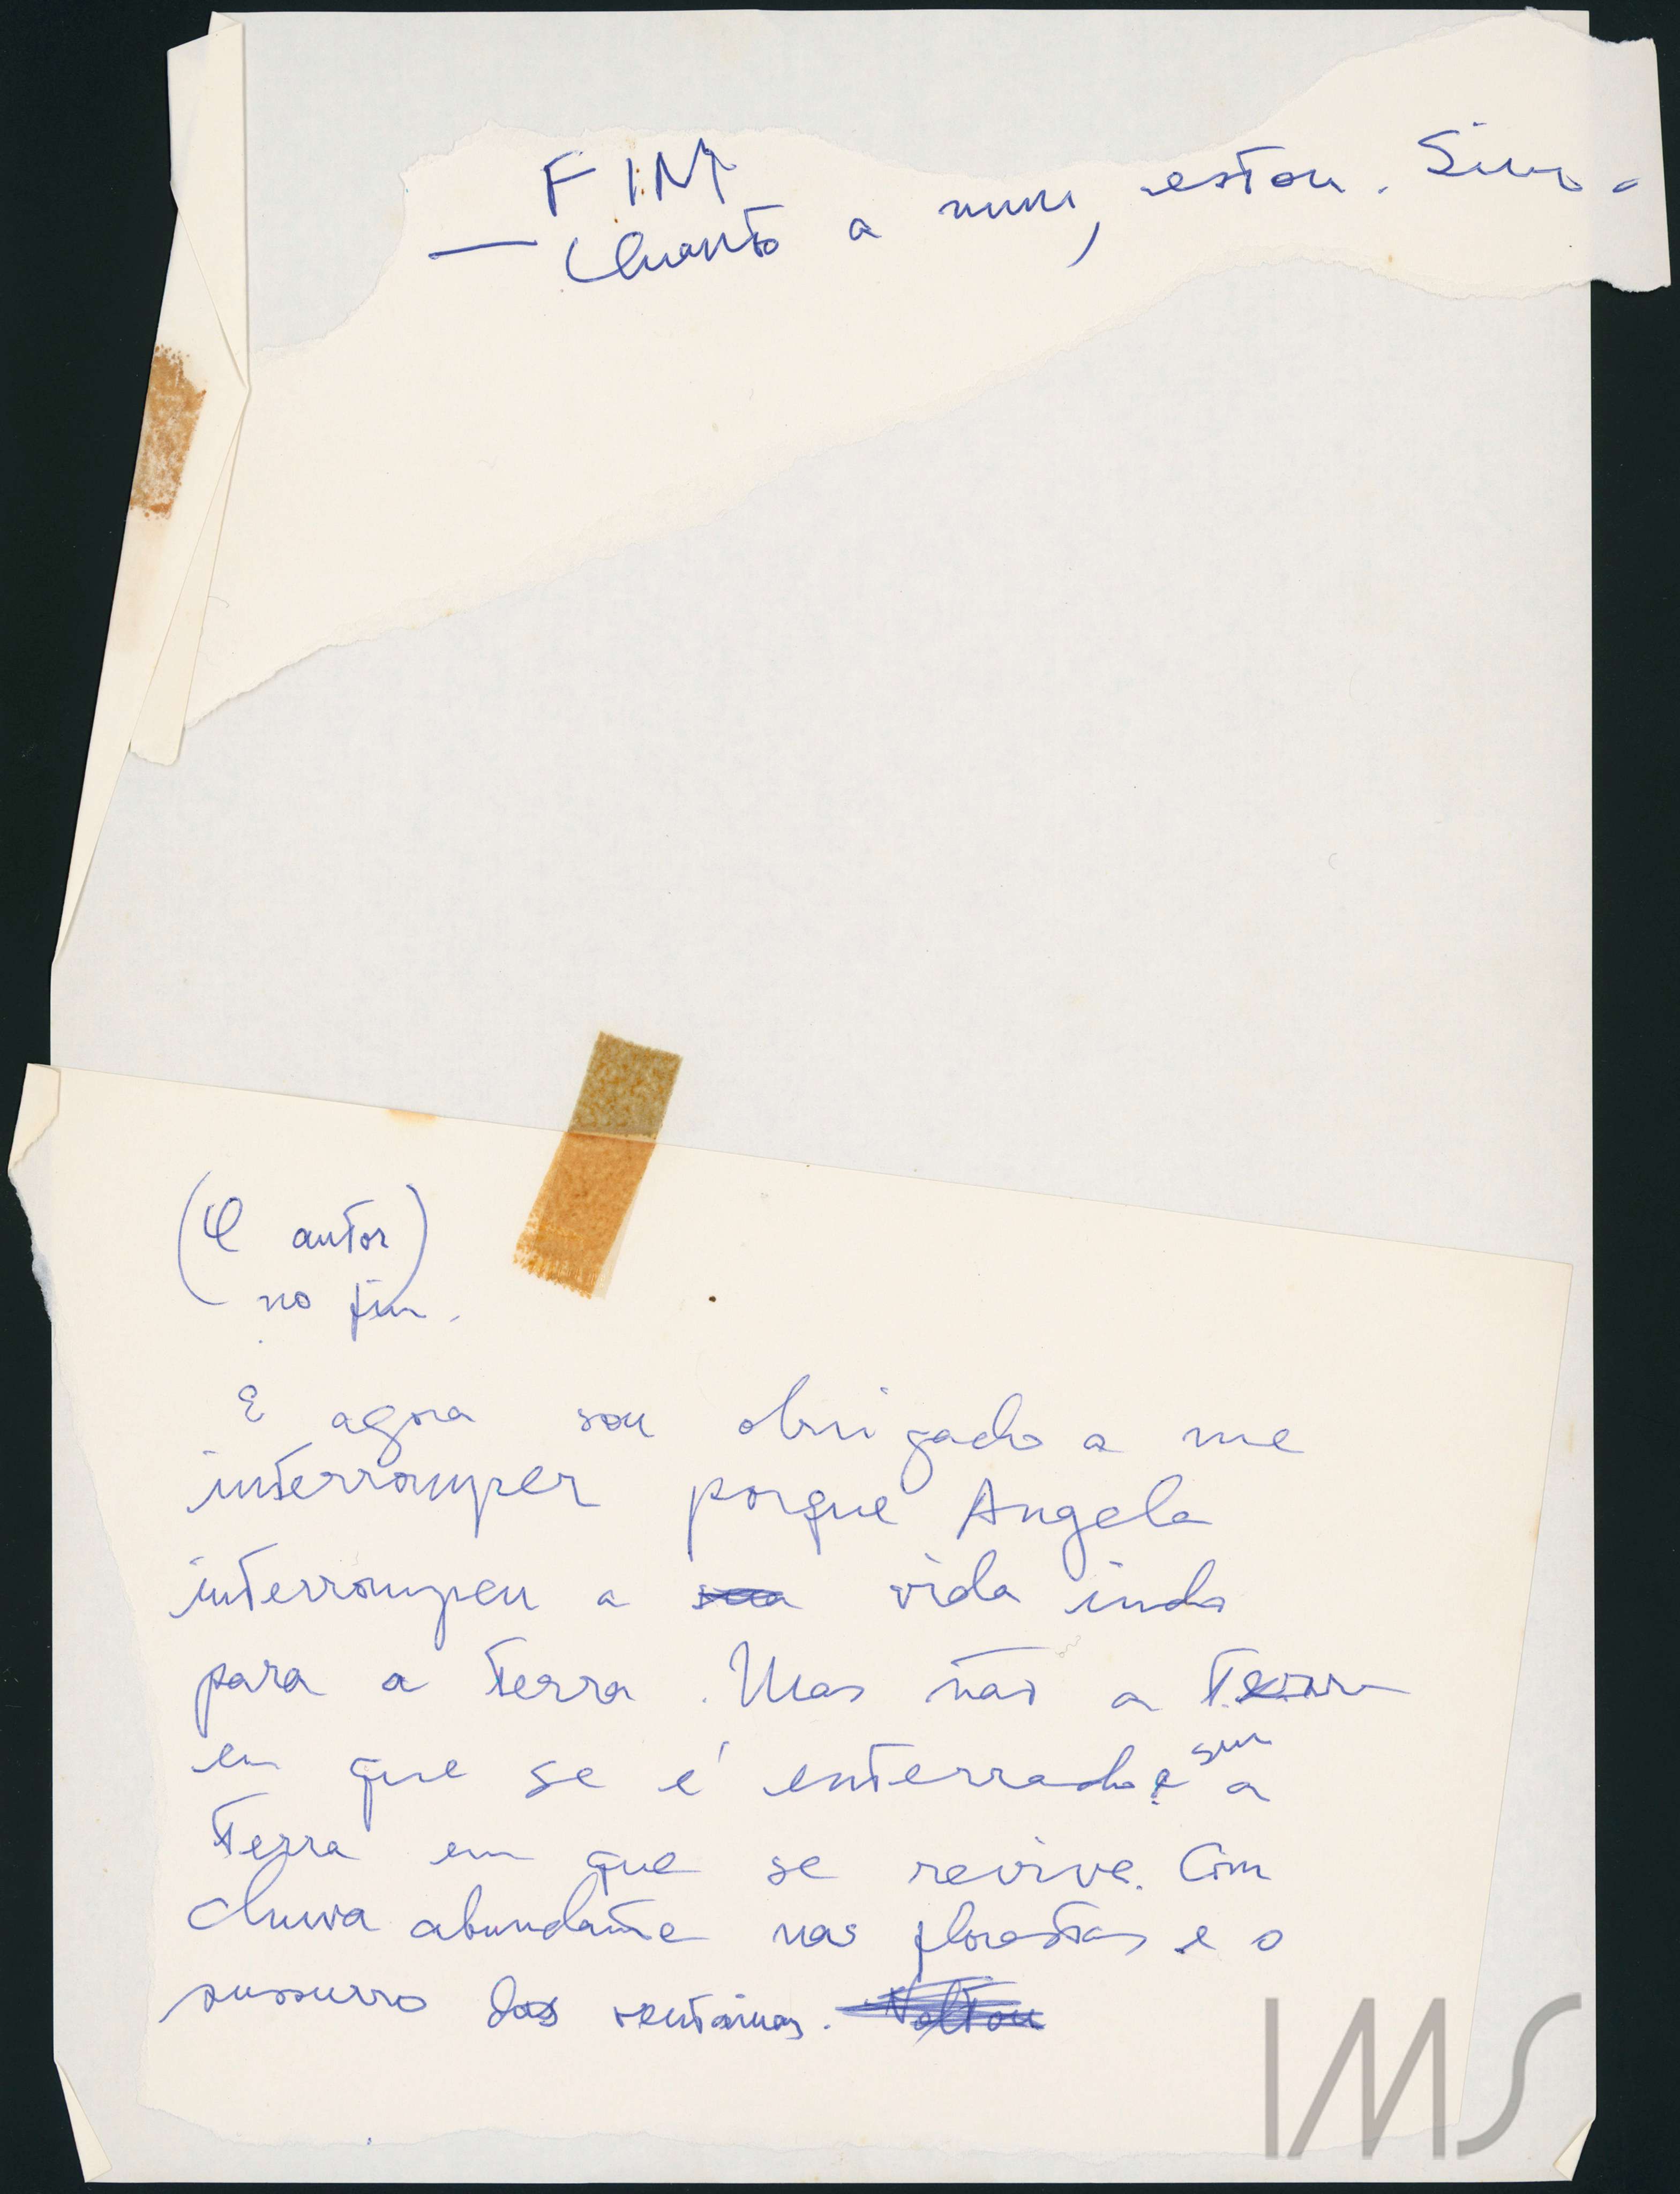 FIM
— Quanto a mim, estou. Sim.
(O autor)
no fim.
E agora sou obrigado a me
interromper porque Angela
interrompeu a sua vida indo
para a terra. Mas não a terra
em que se é enterrado e sim a
terra em que se revive. Com
chuva abundante nas florestas e o
sussurro das ventanias. Voltou
IMS